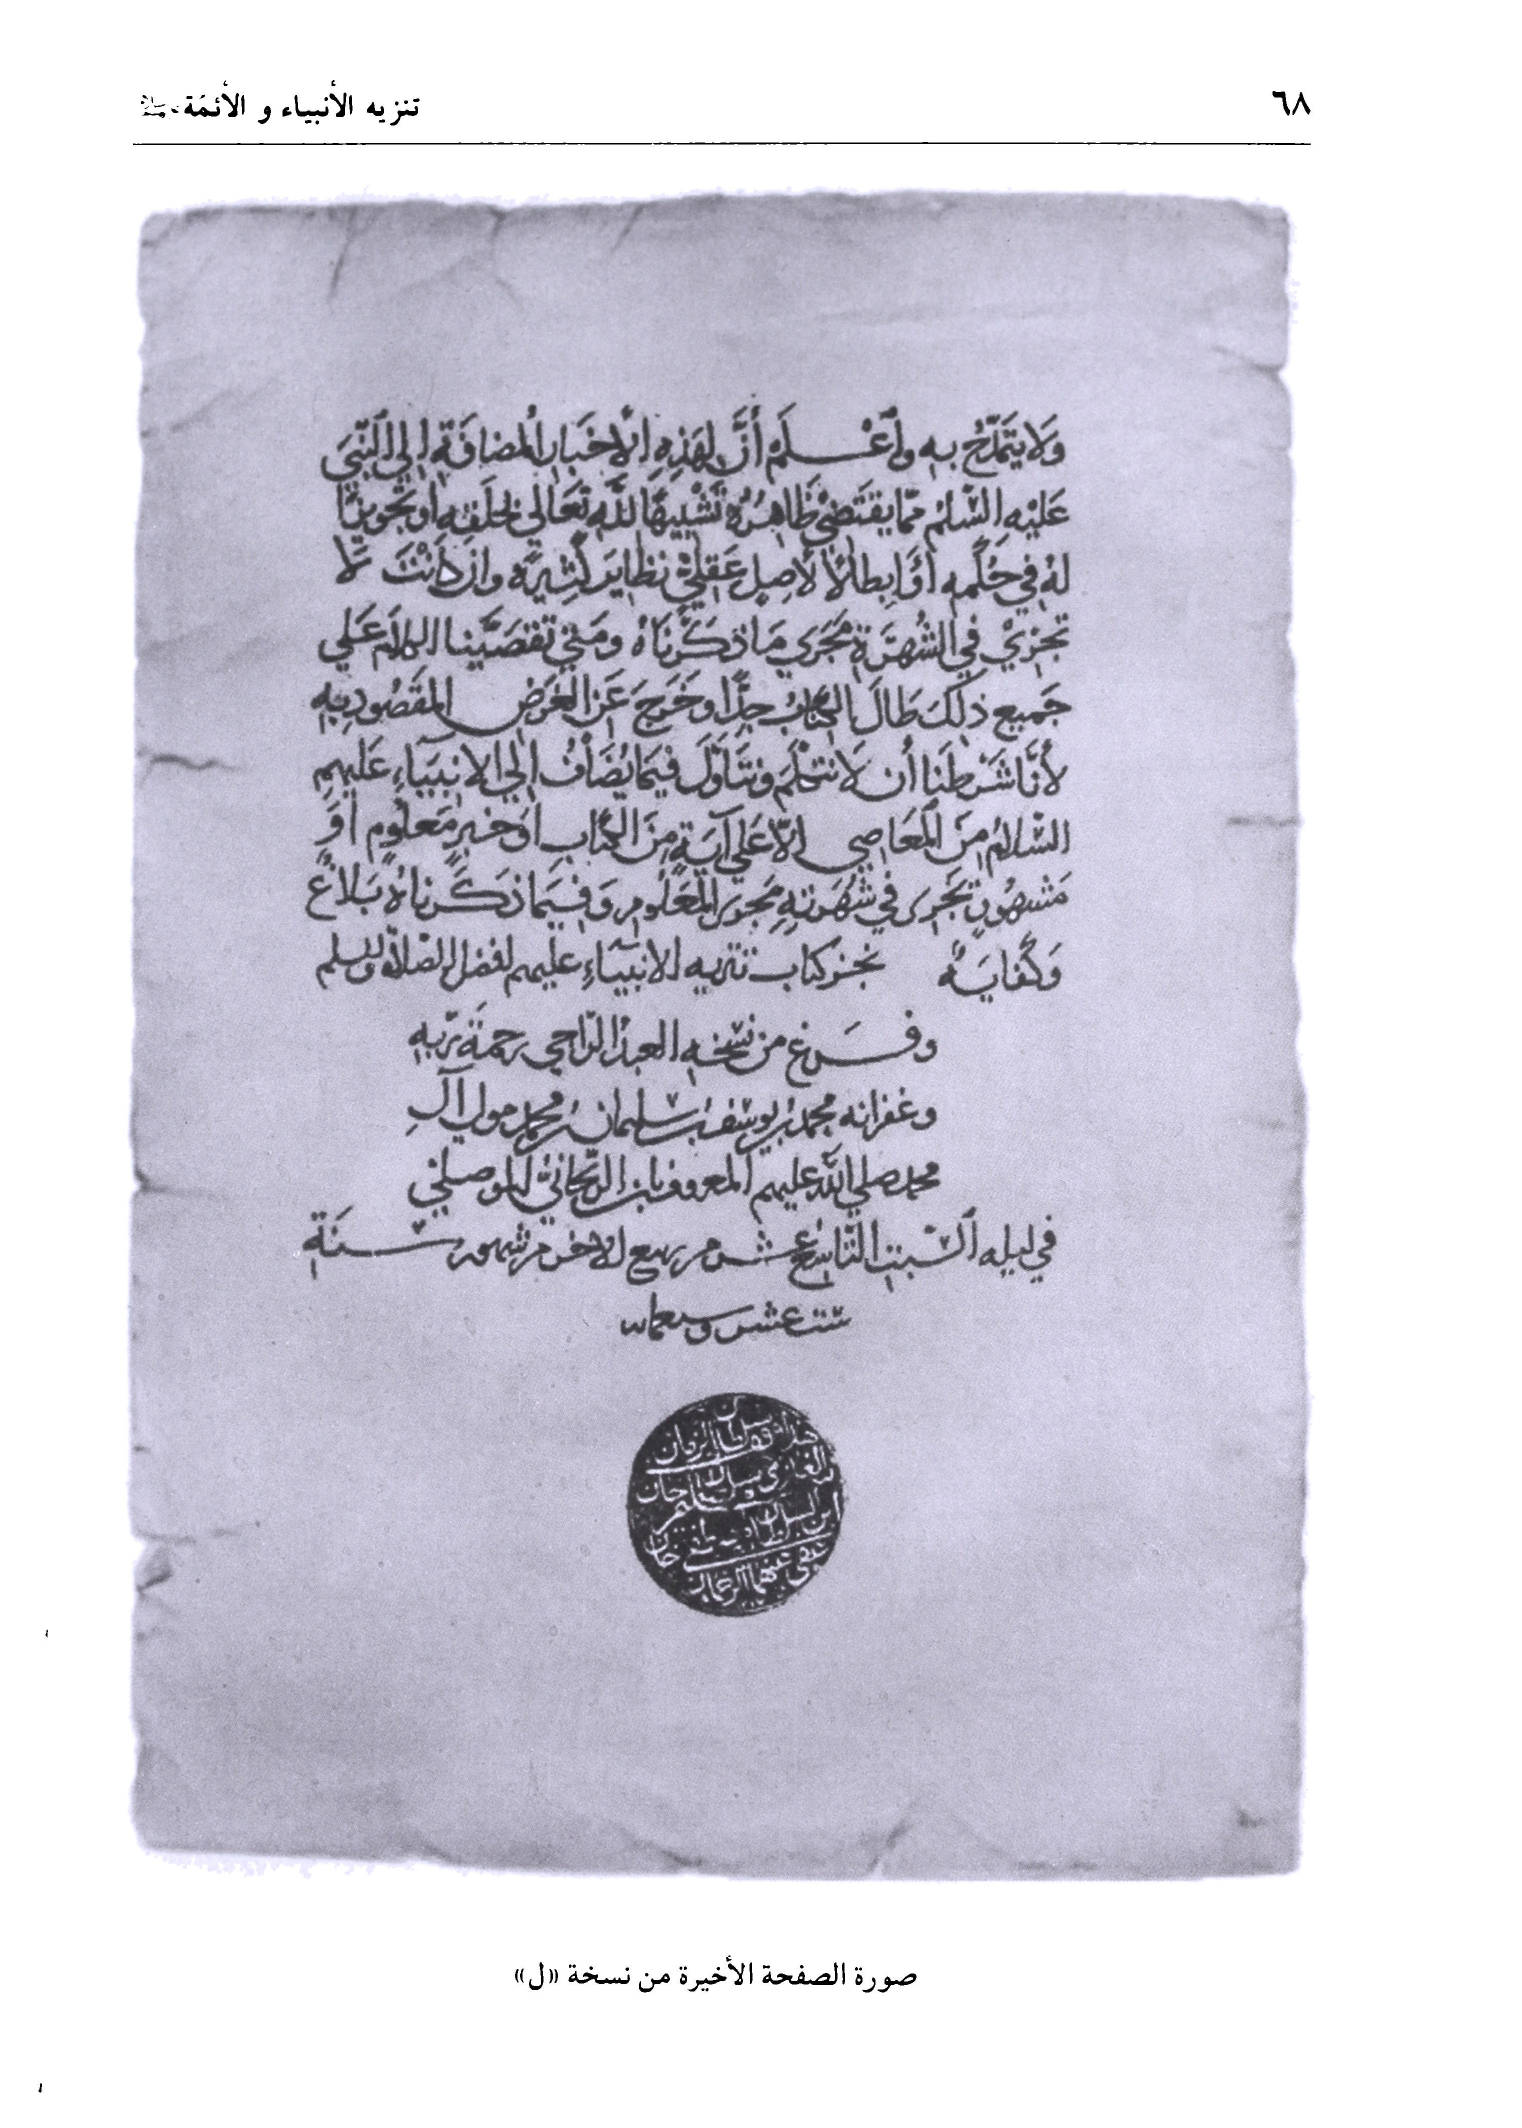 ٦٨
تنزيه الأنبياء و الأئمّة
ولا يتمدّح به وأَعْلَم أنَّ لهَذِهِ الأخبَارِ المُضافَةِ إلى النَّبي
عَلَيْهِ السّلمُ ممّا يقتَضي ظَاهِرُهُ تَشْبِيهًا للّهِ تَعَالى بخلَقِهِ أو تجويزًا
لهُ في حُكمِهِ أوْ إبطالًا لأصلٍ عَقليٍّ نظايرَ كثيرَةً وان كانَتْ لا
تجري في الشُهرَةِ مجرَي مَا ذكَرْنَاهُ ومَتى تقصَّينا الكلامَ عَلي
جَميع ذلكَ طَالَ الكتابُ جِدًّا وخَرَجَ عَن الغَرَضِ المقَصُودِ بِهِ
لأنّا شَرَطَنا أن لا نتكلّمَ ونتأوّلَ فيمَا يُضَافُ إلي الأنبيَاءِ عَليهم
السّلامُ مِنَ المَعَاصِي إلّا عَلي آيَةٍ مِنَ الكتَابِ أوْ خبرٍ مَعلُومٍ أوْ
مَشهُورٍ يَجْرى في شُهرَتِهِ مَجرى المَعلُومِ وَفيمَا ذكَرناهُ بَلاغٌ
وَكفايَةٌ نجز كتاب تنزيه الأنبيَاءِ عليهم افضل الصّلاة والسلم
وفَرغ من نسْخهِ العبدُ الرّاجي رحمَةَ رَبّهِ
وغفرانه محمد بن يوسُف بن سُليمان بن محمد مولى آلِ
محمد صلي اللّه عليهم المعروف بابن الرَّيحانيّ الموصلي
في ليله السّبتِ التّاسع عشر من ربيع الاخر من شهور سَنَةِ
ستّ عشر وسبعمايه
صورة الصفحة الأخيرة من نسخة «ل»